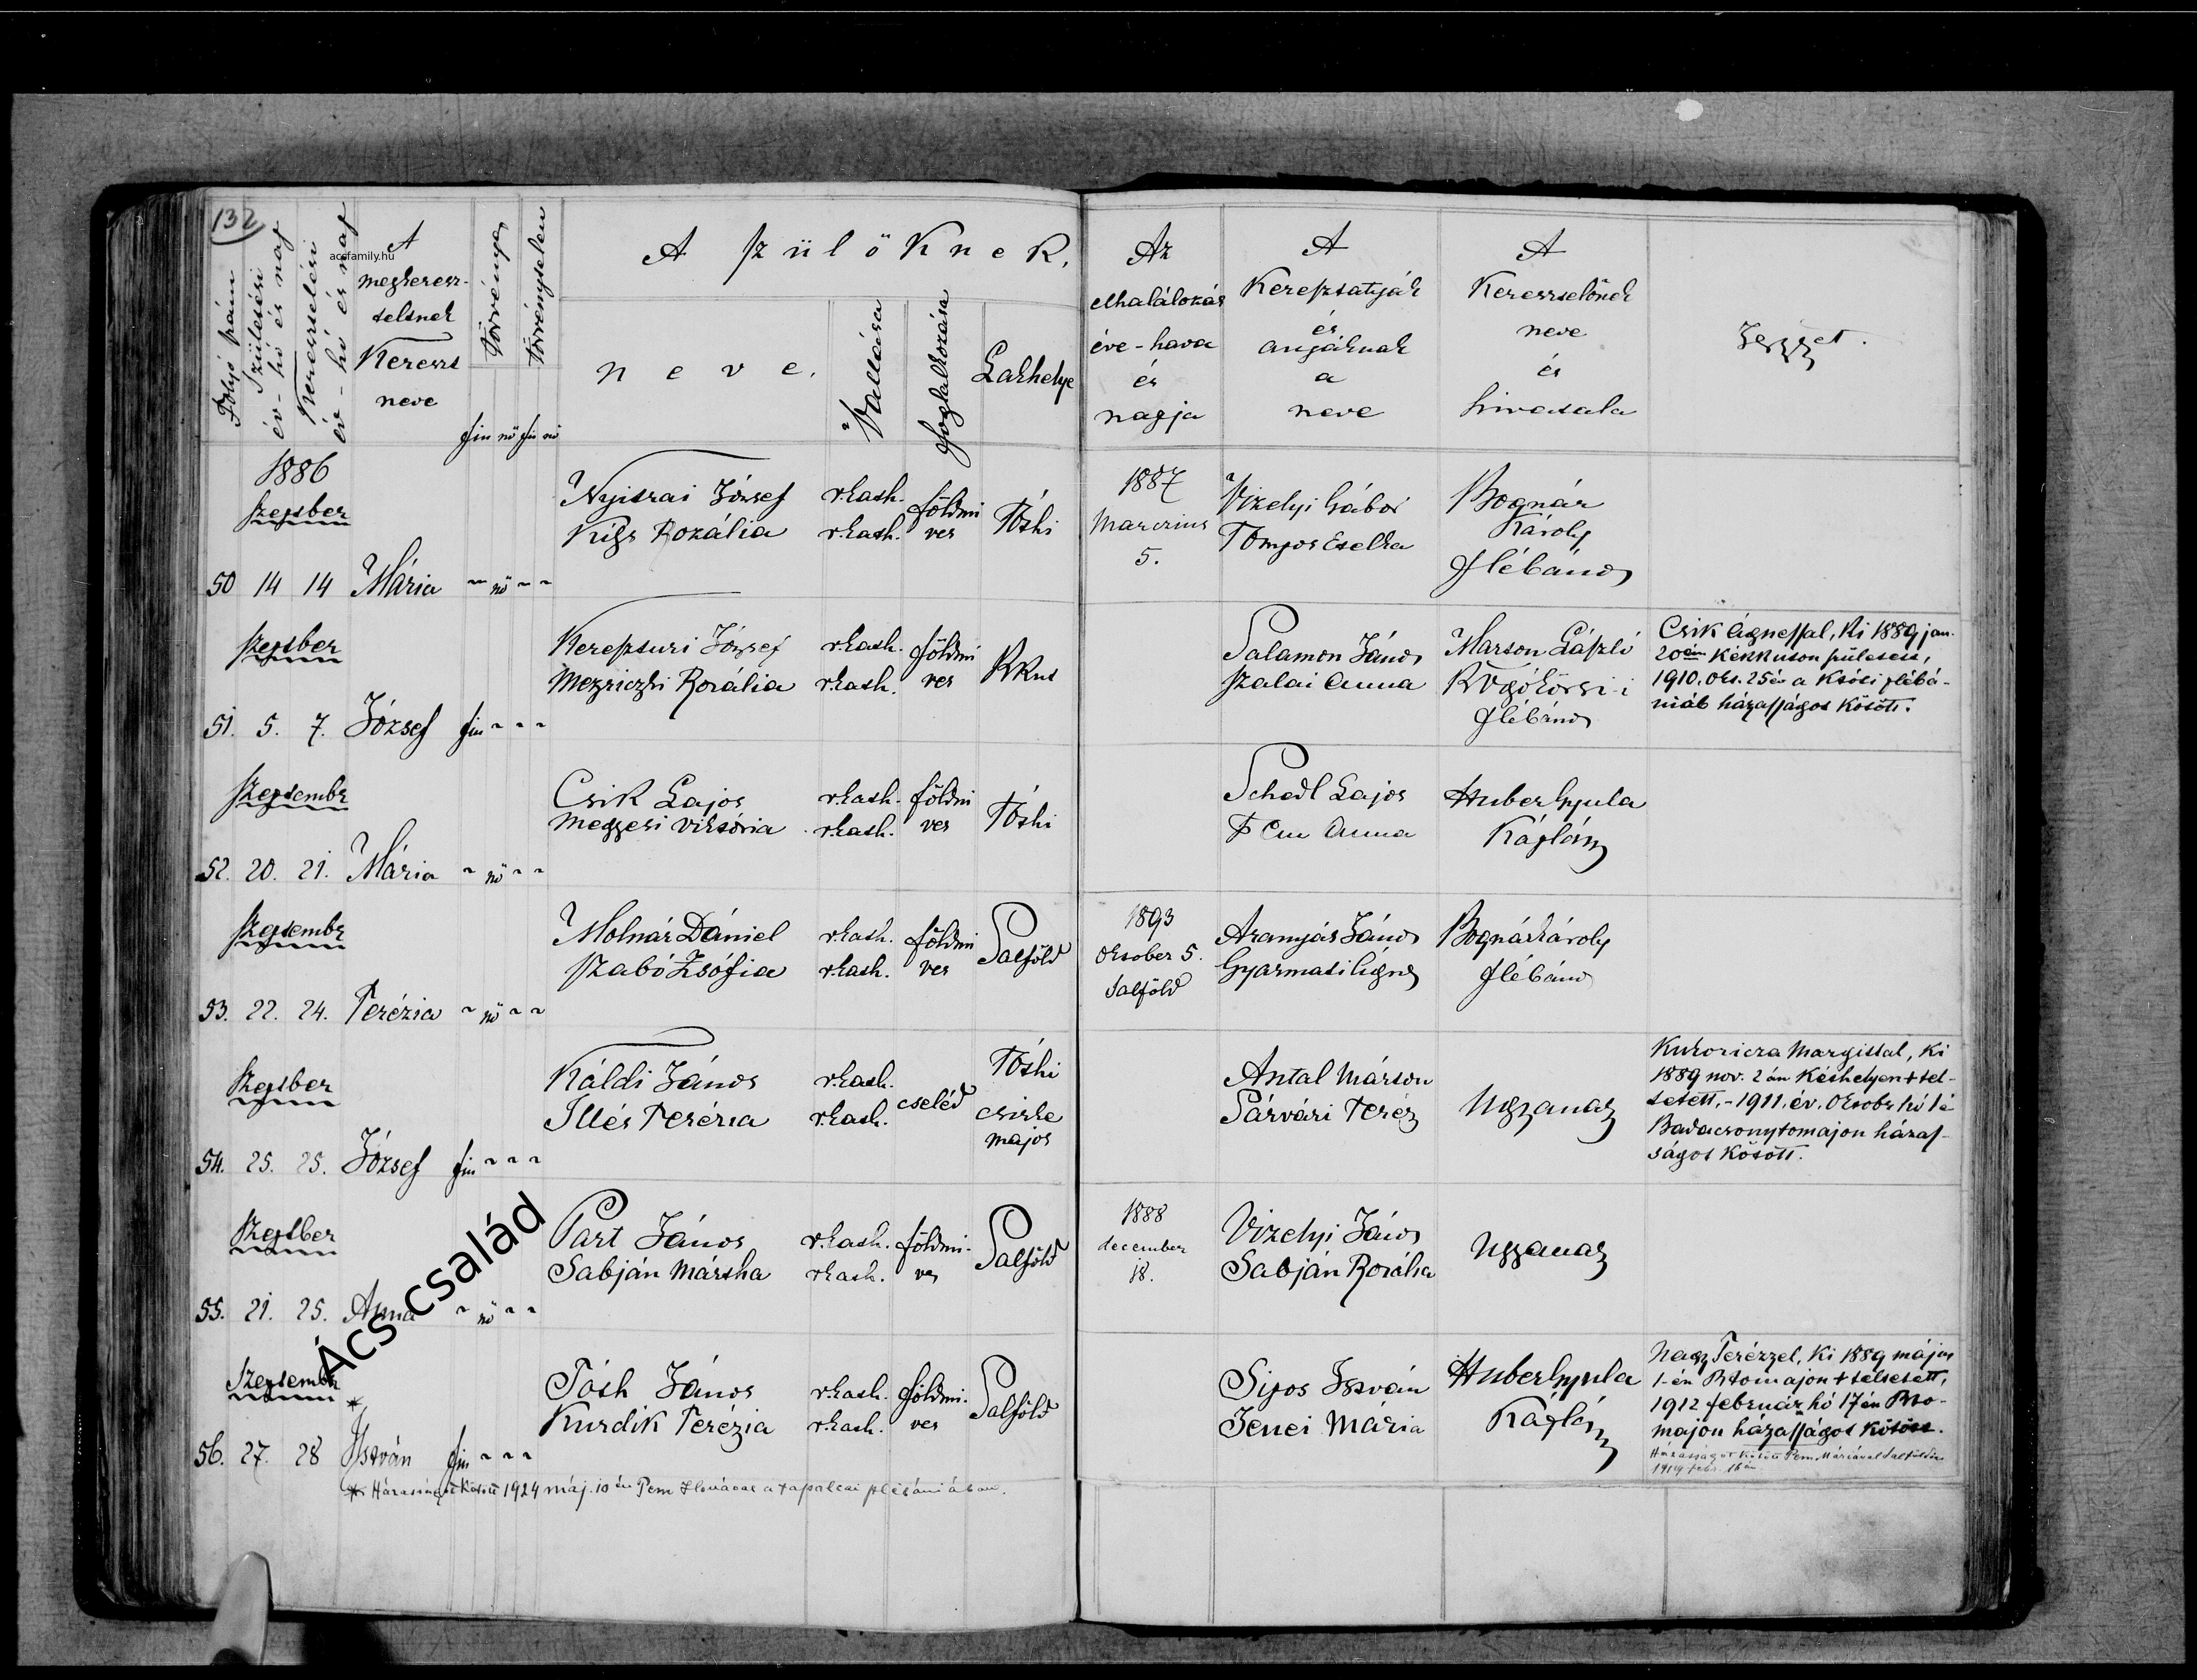 132
Folyó szám
Születési
év- hó és nap
Keresztelési
év - hó és nap
A
megkeresz-
teltnek
Kereszt
neve
törvényes
törvénytelen
fiu nő fiu nő
A szülőknek,
neve.
Vallása
foglalkozása
Lakhelye
Az
elhalálozás
éve - hava
és
napja
A
Keresztatyák
és
anyáknak
a
neve
A
Keresztelőnek
neve
és
hivatala
Jegyzet.
accfamily.hu
1886
Szeptber
50 14 14 Mária ~ nő ~ ~
Nyitrai József r.kath. földmi Tóthi
Rozália r.kath. ves
1887
Marczius
5.
Vizelyi Gábor
Etelka
Bognár
Károly
plébános
Szeptber
51. 5. 7. József fiu ~ ~ ~
Kereszturi József r.kath. földmi KKut
Mezriczki Rozália r.kath. ves
Salamon János
Szalai Anna
Marton László
plébános
Csik Ágnessal, ki 1889 jan.
20án Kékkuton született,
1910. okt. 25én a plébá-
niáb házasságot kötött.
Szeptembr
52. 20. 21. Mária ~ nő ~ ~
Csik Lajos r.kath. földmi Tóthi
Megyesi Viktória r.kath. ves
Schedl Lajos
Anna
Huber Gyula
Káplán
Szeptembr
53. 22. 24. Terézia ~ nő ~ ~
Molnár Dániel r.kath. földmi Salföld
Szabó Zsófia r.kath. ves
1893
Október 5.
Salföld
Aranyás János
Gyarmati Ágnes
Bognár Károly
plébános
Szeptber
54. 25. 25. József fiu ~ ~ ~
Káldi János r.kath. cseléd Tóthi
Illés Terézia r.kath. csirke
major
Antal Márton
Sárvári Teréz
Ugyanaz
Kukoricza Margittal, ki
1889 nov. 2án Kéthelyen szül-
letett, - 1911. év. Októbr hó 1é
Badacsonytomajon házas-
ságot kötött.
Szeptber
55. 21. 25. Anna ~ nő ~ ~
Part János r.kath. földmi- Salföld
Sabján Mártha r.kath. ves
1888
december
18.
Vizelyi János
Sabján Rozália
Ugyanaz
Szeptembr
56. 27. 28 István fiu ~ ~ ~
Tóth János r.kath. földmi- Salföld
Kurdik Terézia r.kath. ves
Sipos István
Jenei Mária
Huber Gyula
Káplán
Nagy Terézzel, ki 1889 május
1-én Btomajon született,
1912 február hó 17én Bto-
majon házasságot kötött.
Házasságot kötött Pem Máriával Salföldön
1919 febr. 18án
* Házasságot kötött 1924 máj. 10én Pem Ilonával a tapolcai plébániában.
Ács család